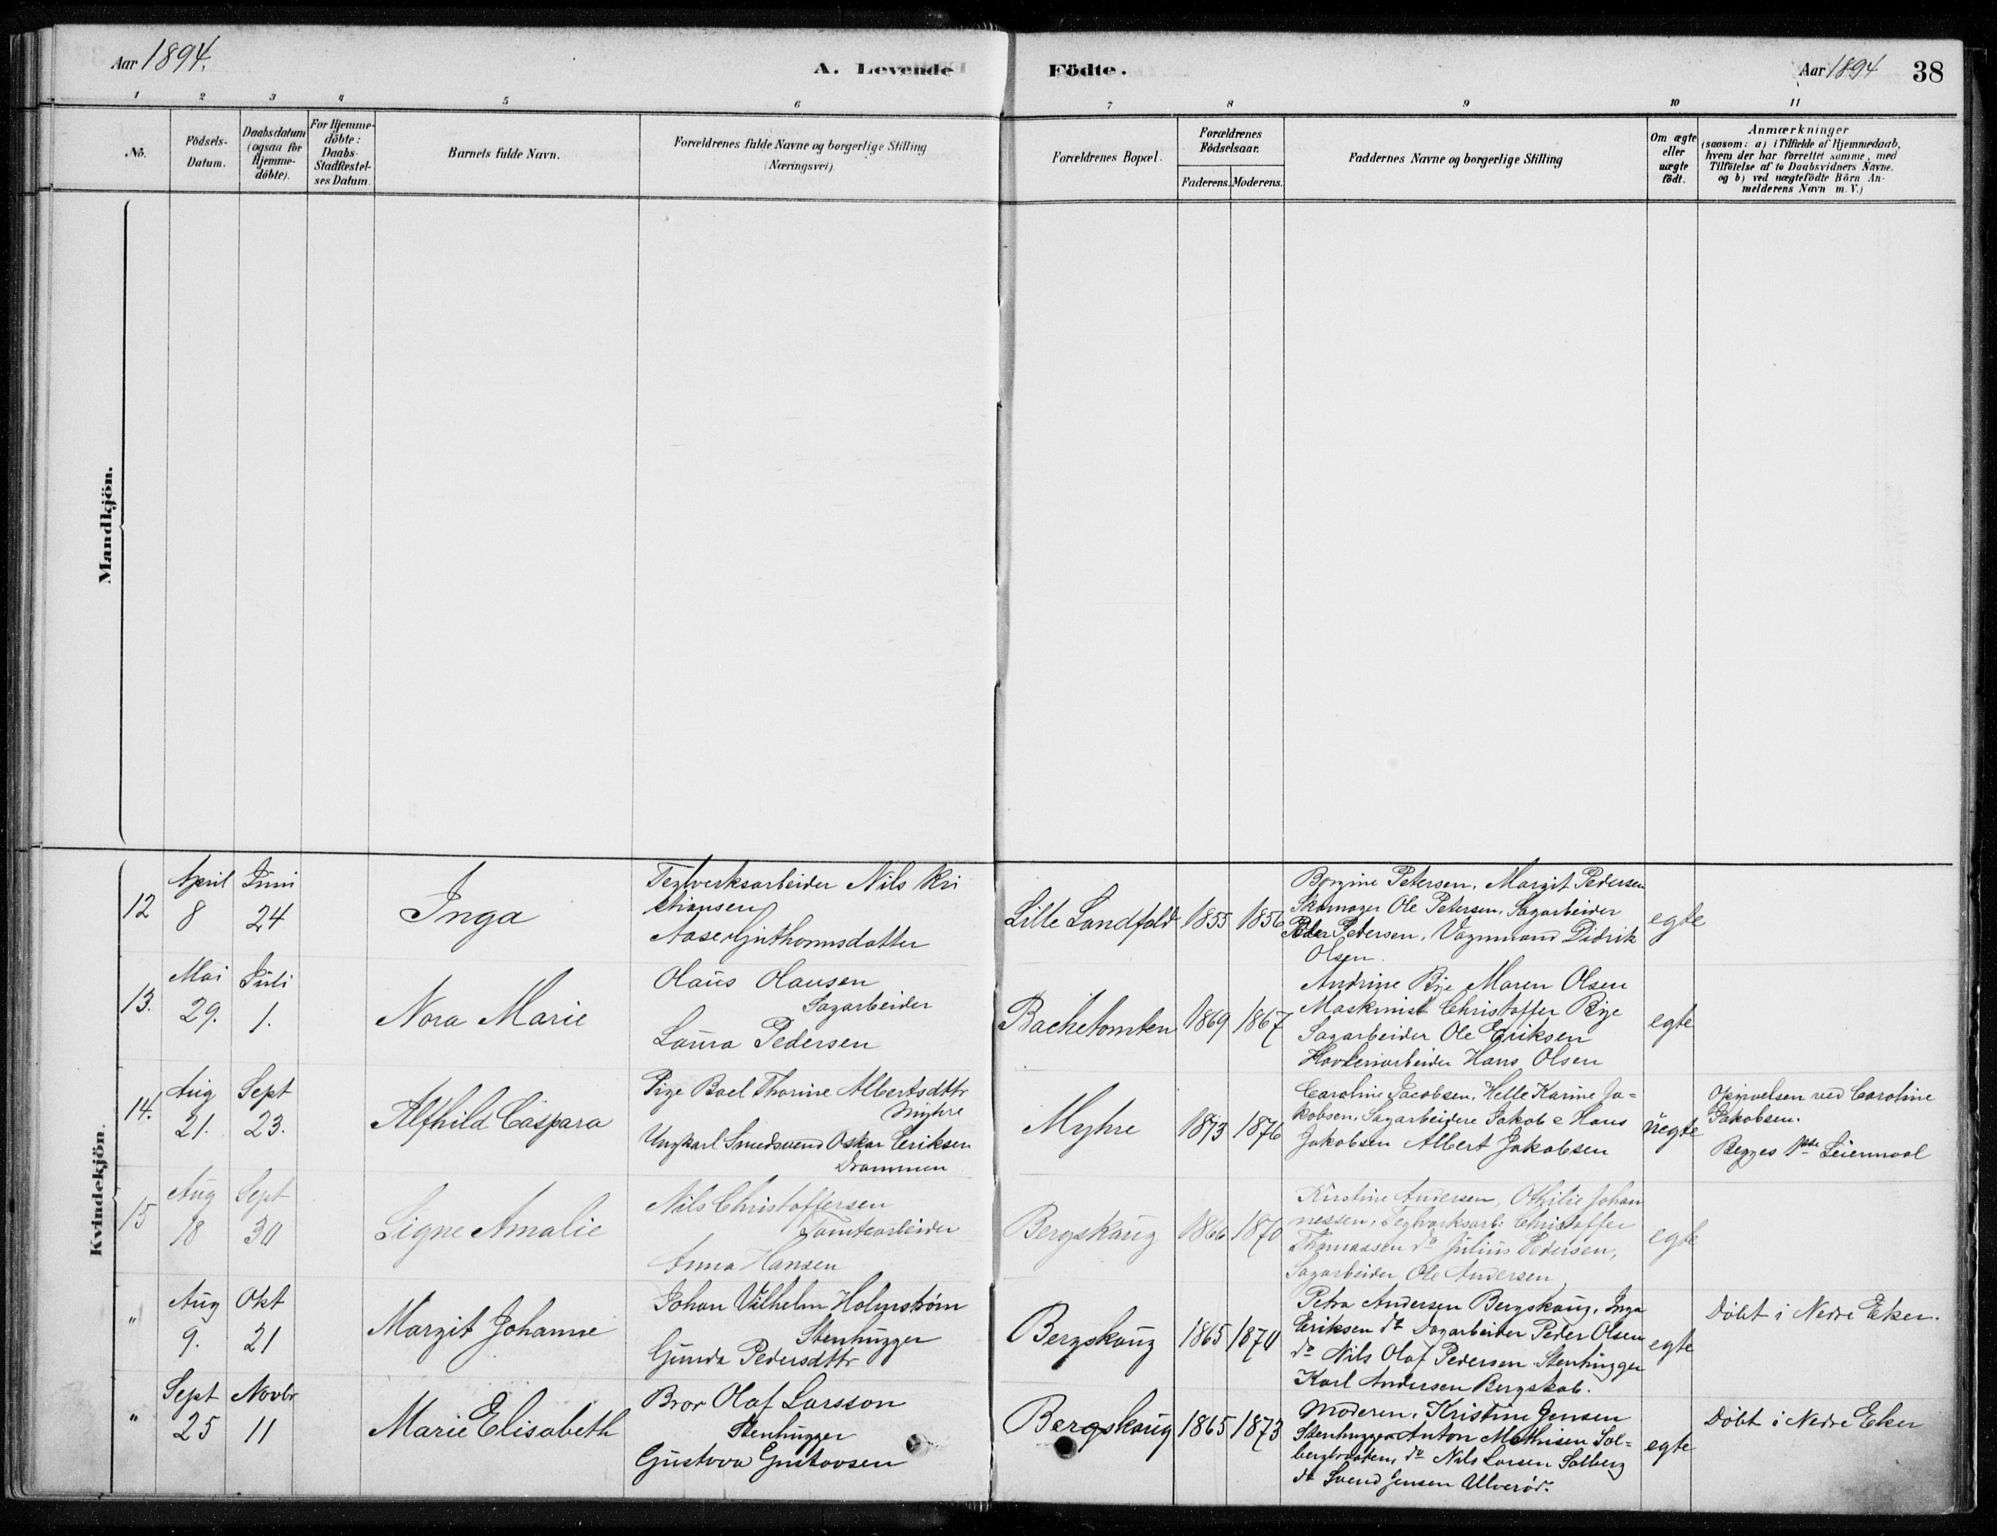 Aar 1894.
A. Levende Födte.
Aar 1894
38
1 2 3 4 5 6 7 8 9 10 11
Nö.
Födsels-
Datum.
Daabsdatum
(ogsaa for
Hjemme-
döbte).
For Hjemme-
döbte:
Daabs-
Stadfæstel-
ses Datum.
Barnets fulde Navn.
Forældrenes fulde Navne og borgerlige Stilling
(Næringsvei).
Forældrenes Bopæl.
Forældrenes
Födselsaar.
Faderens. Moderens.
Faddernes Navne og borgerlige Stilling
Om ægte
eller
uægte
födt.
Anmærkninger
(saasom: a) i Tilfælde af Hjemmedaab,
hvem der har forrettet samme, med
Tilföielse af to Daabsvidners Navne.
og b) ved uægtefödte Börn An-
melderens Navn m. V.)
Mandkjön.
Kvindekjön.
12
April
8
Juni
24
Inga
Teglverksarbeider Nils Kri
stiansen
Aase Guthormsdatter
Lille Landfald
1855
1856
Borgine Petersen, Margit Pedersen
Skomager Ole Petersen, Sagarbeider
Peder Petersen, Vognmand Didrik
Olsen.
egte
13.
Mai
29.
Juli
1.
Nora Marie
Olaus Olausen
Sagarbeider
Laura Pedersen
Bachetomten
1869
1867
Andrine Bye Maren Olsen
Maskinist Christoffer Bye
Sagarbeider Ole Eriksen
Hovleriarbeider Hans Olsen
egte
14.
Aug
21.
Sept
23.
Alfhild Caspara
Pige Bael Thorine Albertsdttr
Myhre
Ungkarl Smedsvend Oskar Eriksen
Drammen
Myhre
1873
1876
Caroline Jacobsen, Helle Karine Ja-
kobsen, Sagarbeidere Jakob & Hans
Jakobsen Albert Jakobsen
uegte
Opgivelsen ved Caroline
Jakobsen.
Begges 1ste Leiermaal
15
Aug
18
Sept
30
Signe Amalie
Nils Christoffersen
Tomtearbeider
Anna Hansen
Bergskaug
1866
1870
Kirstine Andersen, Othilie Johan
nessen, Teglverksarb. Christoffer
Thomassen do Julius Pedersen,
Sagarbeider Ole Andersen
egte
"
Aug
9.
Okt
21
Margit Johanne
Johan Vilhelm Holmström
Stenhugger
Gunda Pedersdttr
Bergskaug
1865
1870
Petra Andersen Bergskaug, Inga
Eriksen do Dagarbeider Peder Olsen
do Nils Olaf Pedersen Stenhugger
Karl Andersen Bergskab.
egte
Döbt i Nedre Eker.
"
Sept
25
Novbr
11
Marie Elisabeth
Bror Olaf Larsson
Stenhugger
Gustava Gustavsen
Bergskaug
1865
1873
Moderen, Kristine Jensen
Stenhugger Anton Mathisen Sol-
do Nils Larsen Solberg
do Svend Jensen Ulverød.
egte
Döbt i Nedre Eker